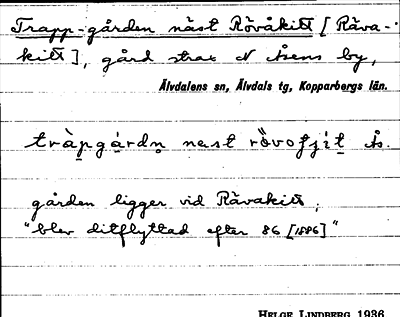 Trapp-gården näst Rövåkitt [Räva-
kitt], gård strax N Åsens by,
Älvdalens sn, Älvdals tg, Kopparbergs län.
tràpgárdn nest rövofjit Ås.
gården ligger vid Rävakitt,
"blev ditflyttad efter 86 [1886]"
HELGE LINDBERG 1936